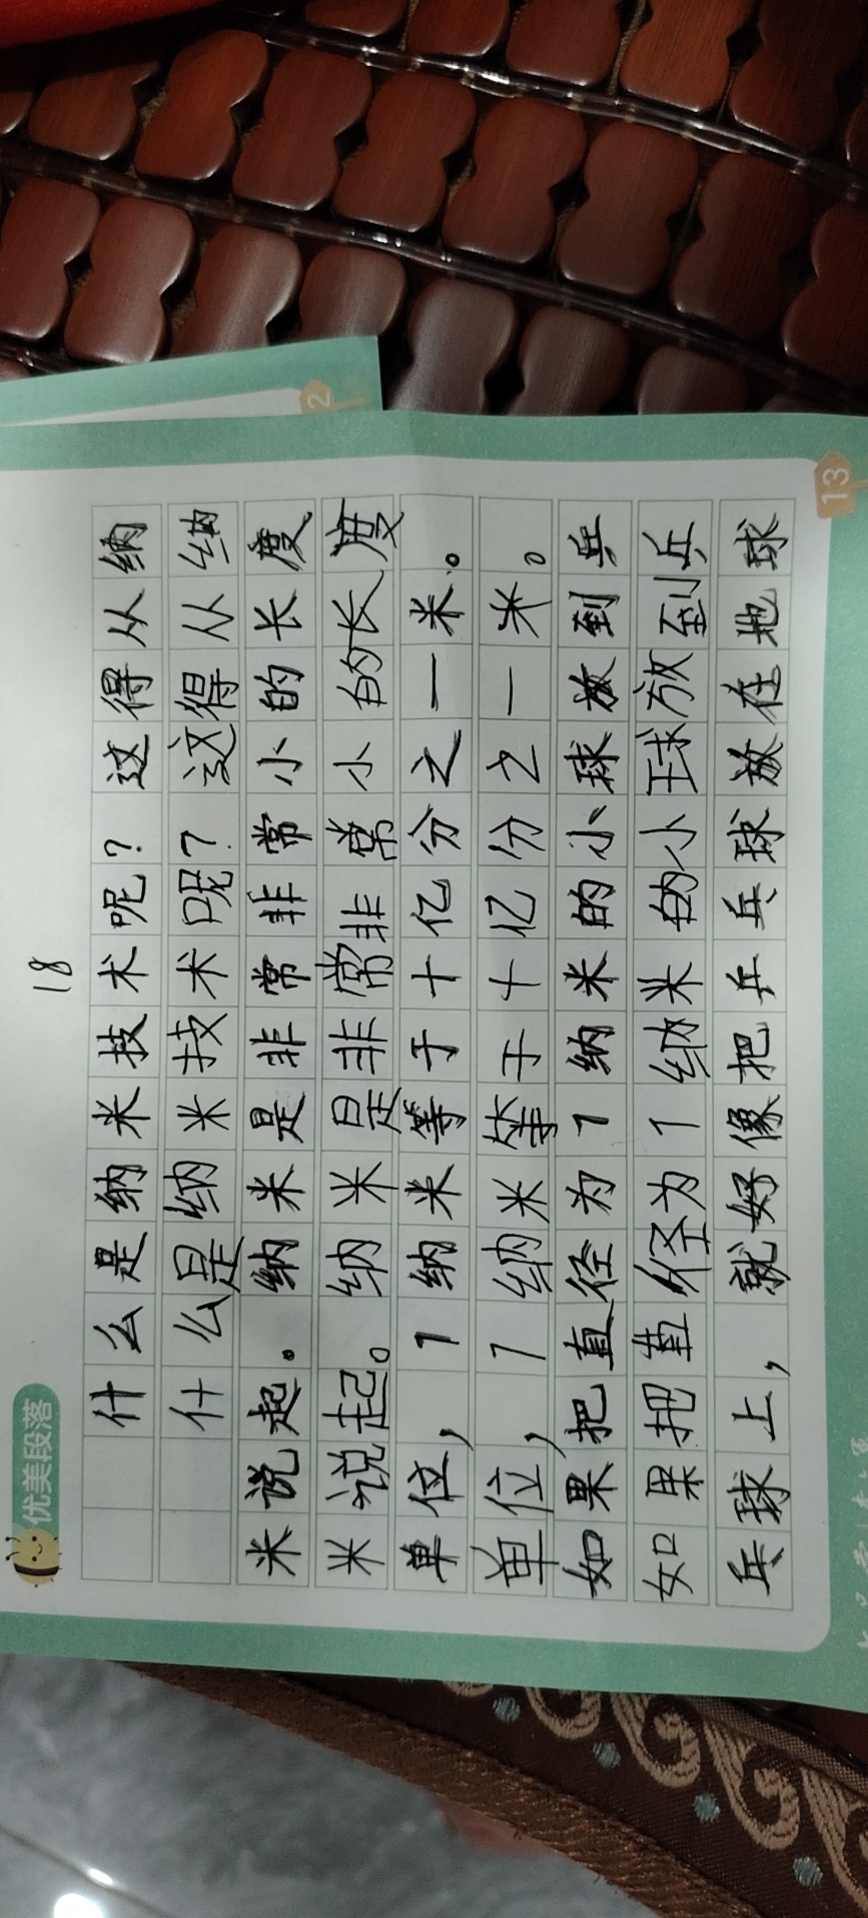 优美段落
18
什么是纳米技术呢？这得从纳
什么是纳米技术呢？这得从纳
米说起。纳米是非常非常小的长度
米说起。纳米是非常非常小的长度
单位，1纳米等于十亿分之一米。
单位，1纳米等于十亿分之一米。
如果把直径为1纳米的小球放到乒
如果把直径为1纳米的小球放到乒
乓球上，就好像把乒乓球放在地球
13
2